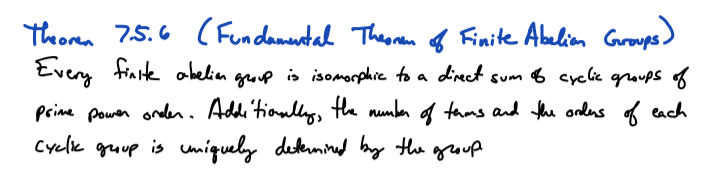 Theorem 7.5.6 (Fundamental Theorem of Finite Abelian Groups)
Every finite abelian group is isomorphic to a direct sum of cyclic groups of
prime power order. Additionally, the number of terms and the orders of each
cyclic group is uniquely determined by the group